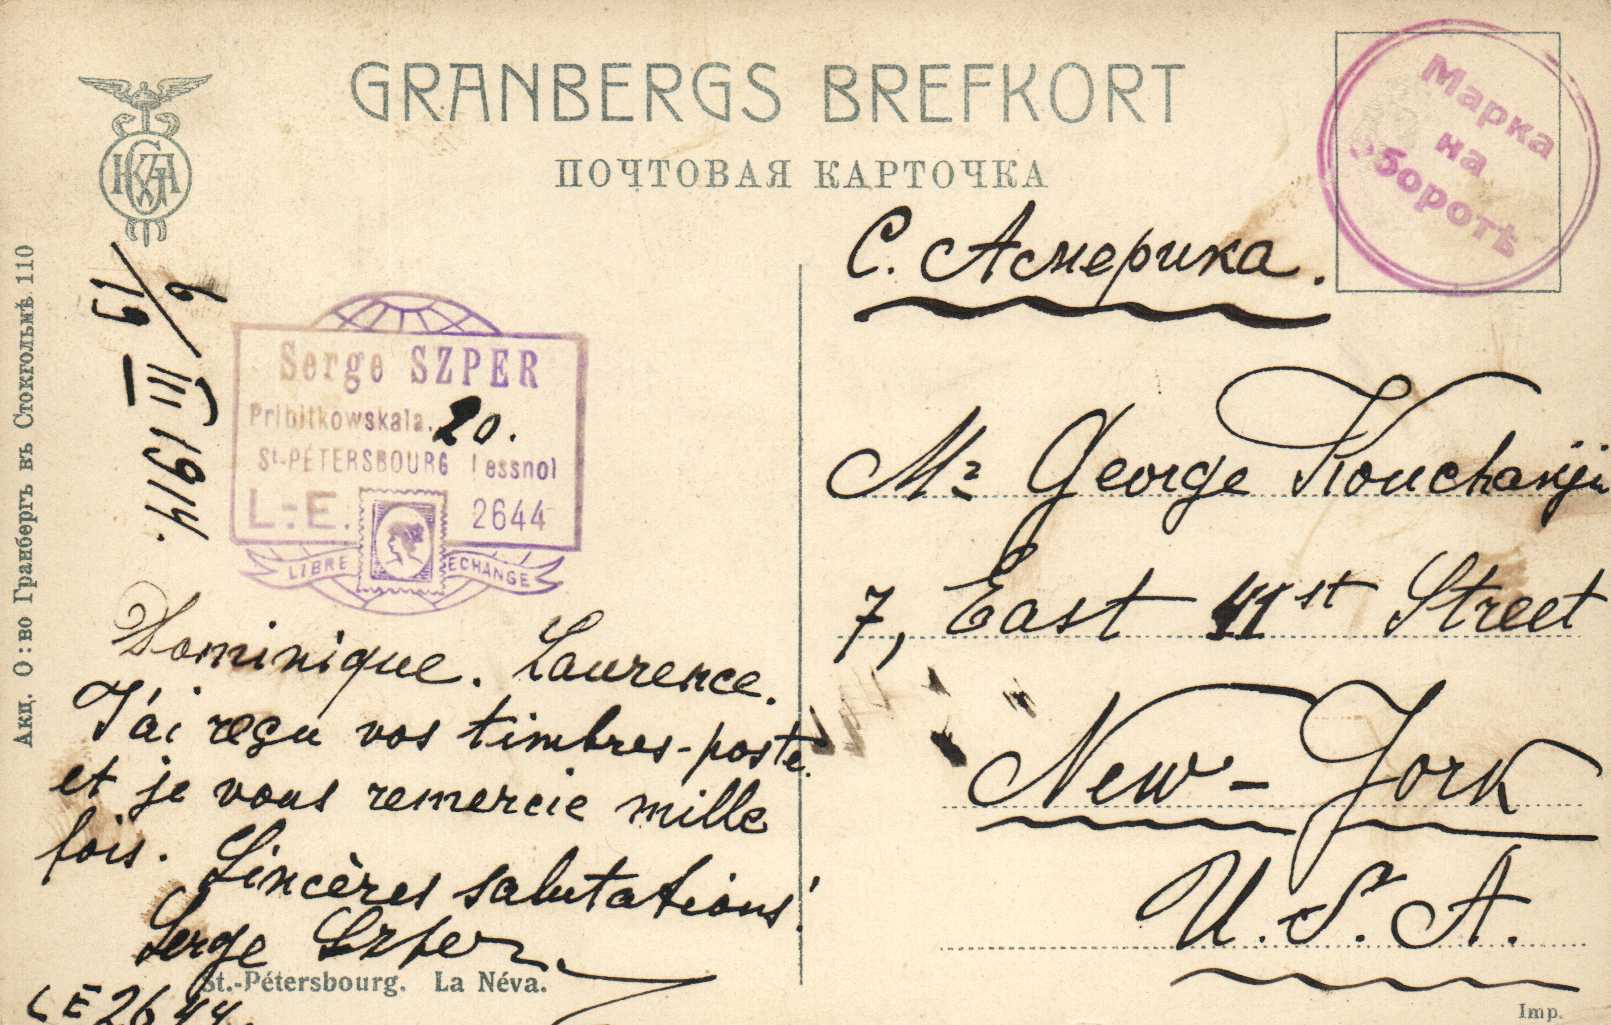 GRANBERGS BREFKORT
ПОЧТОВАЯ КАРТОЧКА
Марка
на
оборотѣ
С. Америка.
Mr George
7, East 41st Street
New-York
U.S.A.
6/19 III 1914.
Serge SZPER
Pribitkowskaia. 20.
St-PÉTERSBOURG Lessnoi
L.-E. 2644
LIBRE ECHANGE
Dominique. Laurence.
J'ai reçu vos timbres-poste
et je vous remercie mille
fois. Sincères salutations!
Serge Szper
LE 2644.
St.-Pétersbourg. La Néva.
Акц. О:во Гранбергъ въ Стокгольмѣ 110
Imp.